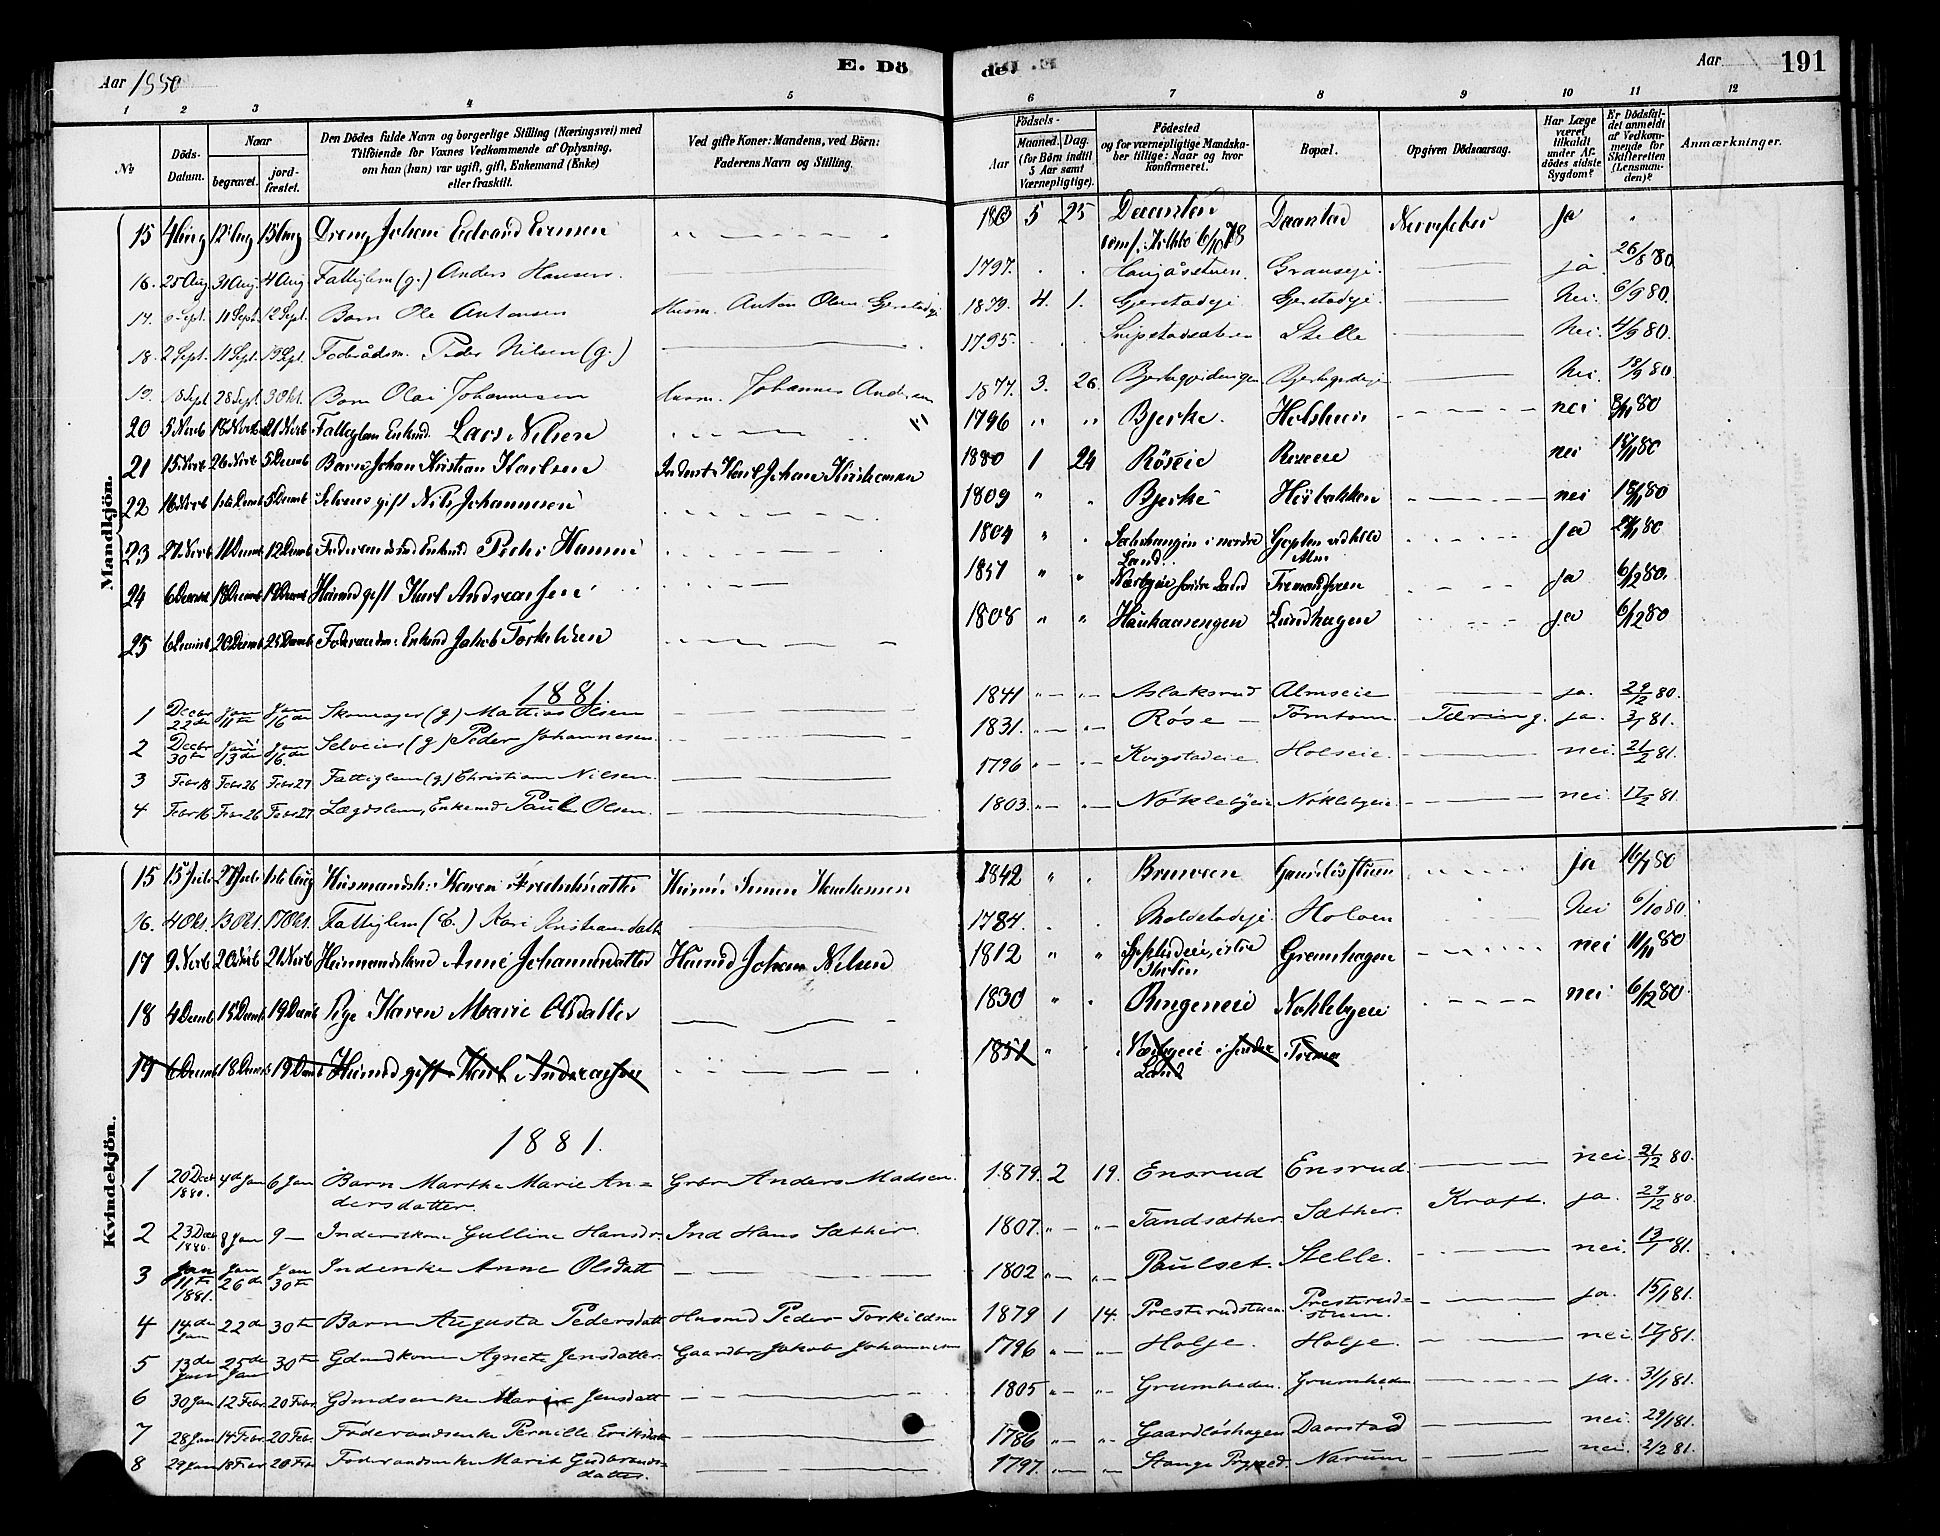 Aar 1880 E. Dö de. Aar 191
1 2 3 4 5 6 7 8 9 10 11 12
No Döds-Datum. Naar begravet. jordfæstet. Den Dödes fulde Navn og borgerlige Stilling (Næringsvei) med Tilföiende for Voxnes Vedkommende af Oplysning, om han (hun) var ugift, gift, Enkemand (Enke) eller fraskilt. Ved gifte Koner: Mandens, ved Börn: Faderens Navn og Stilling. Födsels- Aar Maaned. Dag. (for Börn indtil 5 Aar samt Værnepligtige). Födested og for værnepligtige Mandskaber tillige: Naar og hvor konfirmeret. Bopæl. Opgiven Dödsaarsag. Har Læge været tilkaldt under Afdödes sidste Sygdom? Er Dödsfaldet anmeldt af Vedkommende for Skifteretten (Lensmanden)? Anmærkninger.
Mandkjön.
15 4 Aug 12 Aug 15 Aug Dreng Johan Edvard 1863 5 25 Daarstad Nervefeber ja
16. 25 Aug 31 Aug Fattiglem (g.) Anders Hansen. 1797. Grauseje. ja. 26/8 80
17. Sept. 11 Sept. 12 Sept. Barn Ole Antonsen Husm. Anton Olsen Gjerstadeje 1879. 4. 1. Gjerstadeje Gjerstadeje. Nei. 6/9 80.
18. 2 Sept. 11 Sept. 19 Sept. Föderådsm. Peder Nilsen (g.) 1795. Stelle Nei. 4/9 80.
19. 18 Sept 28 Sept. 3 Okt. Barn Olai Johannesen Husm. Johannes Andersen 1877. 3. 26. Nei. 18/9 80.
20 5 Novb 18 Novb 21 Novb Fattiglem Enkmd. Lars Nilsen 1796 " " Bjerke. nei 80
21 15 Novb 26 Novb 5 Decemb Barn Johan Kristian Karlsen Inderst Karl Johan 1880 1 24 Röseie Röseie nei 80
22 16 Novb 1ste Decemb 5 Decemb Selveier gift Nils Johannesen 1809 " " Bjerke nei 80
23 27 Novb 11 Decemb 12 Decemb Enkmd Peder 1804 " " i nordre Land. ja 80
24 6 Decemb 18 Decemb 19 Decemb Husmd gift Karl Andreassen 1851 " " söndre Land ja 6/12 80.
25 6 Decemb 20 Decemb 25 Decemb Föderaadsm. Enkmd Jakob Torkildsen 1808 " " Haukaasengen Lundhagen ja 6/12 80
1881.
1 Decbr 22de Jan 11te Jan 16de Skomager (g) Mathias Olsen 1841 Aslaksrud Almseie ja. 29/12 80.
2 Decbr 30te Jan 13de Jan 16de Selveier (g) Peder Johannesen. 1831. Röse Tömtom Tæring. ja. 3/1 81.
3 Febr 18 Febr 26 Febr 27 Fattiglem (g) Christian Nilsen. 1796 Kvigstadeie Holseie nei. 21/2 81.
4 Febr 16 Febr 26 Febr 27 Lægdslem, Enkemd Paul Olsen. 1803. Nöklebyeie Nöklebyeie nei. 17/2 81.
Kvindekjön.
15 15 Juli 27 Juli 1ste Aug Husmandsk: Karen Fredriksdatter Husmd. Simen 1842 " " ja 16/7 80
16. 4 Okt. 13 Okt. 17 Okt. Fattiglem (E.) Kari Kristiansdatt 1784. Holven Nei 6/10 80
17 9 Novb 20 Novb 21 Novb Husmandskone Anne Johannesdatter Husmd Johan Nilsen 1812 " " Grønhagen nei 11/11 80
18 4 Decemb 15 Decemb 19 Decemb Pige Karen Marie Olsdatter 1830 " " Ringeneie Nøklebyeie nei 6/12 80
19 6 Decemb 18 Decemb 19 Decemb Husmd gift Karl Andreassen 1851 " " i söndre Land
1881.
1 20 Decbr 1880. 4de Jan 6 Jan Barn Marthe Marie Andersdatter. Grbr Anders Madsen. 1879. 2 19. Ensrud Ensrud nei. 31/12 80.
2 23 Dec 1880. 8 Jan 9 — Inderstkone Gulline Hansdr. Ind Hans Sæther. 1807. Tandsæther. Sæther. Kræft. ja. 29/12 80.
3 Jan 11te 1881. Jan 26de Jan 30te Indenke Anne Olsdatt 1802 Paulset. Stelle. nei. 13/1 81.
4 14de Jan 22de 30te Barn Augusta Pedersdatt Husmd Peder Torkildsen 1879 1 14. Presterudstuen. Presterudstuen. ja. 15/1 81.
5 13de Jan 25de Jan 30te Gdmdkone Agnete Jensdatter. Gaardbr. Jakob Johannesen 1796 Holje. Holje. nei. 17/1 81.
6 30 Jan 12 Febr. 20 Febr. Gdmdsenke Marie Jensdatt 1805 Grumheden. Grumheden ja. 31/1 81.
7 28 Jan 14 Febr. 20 Febr. Föderaadsenke Pernille Eriksdatt 1786 Gaardlöshagen Daarstad nei. 29/1 81.
8 29 Jan 18 Febr 20 Febr Föderaadsenke Marit Gudbrandsdatter. 1797. Stange Prgjed. Narum nei. 2/2 81.